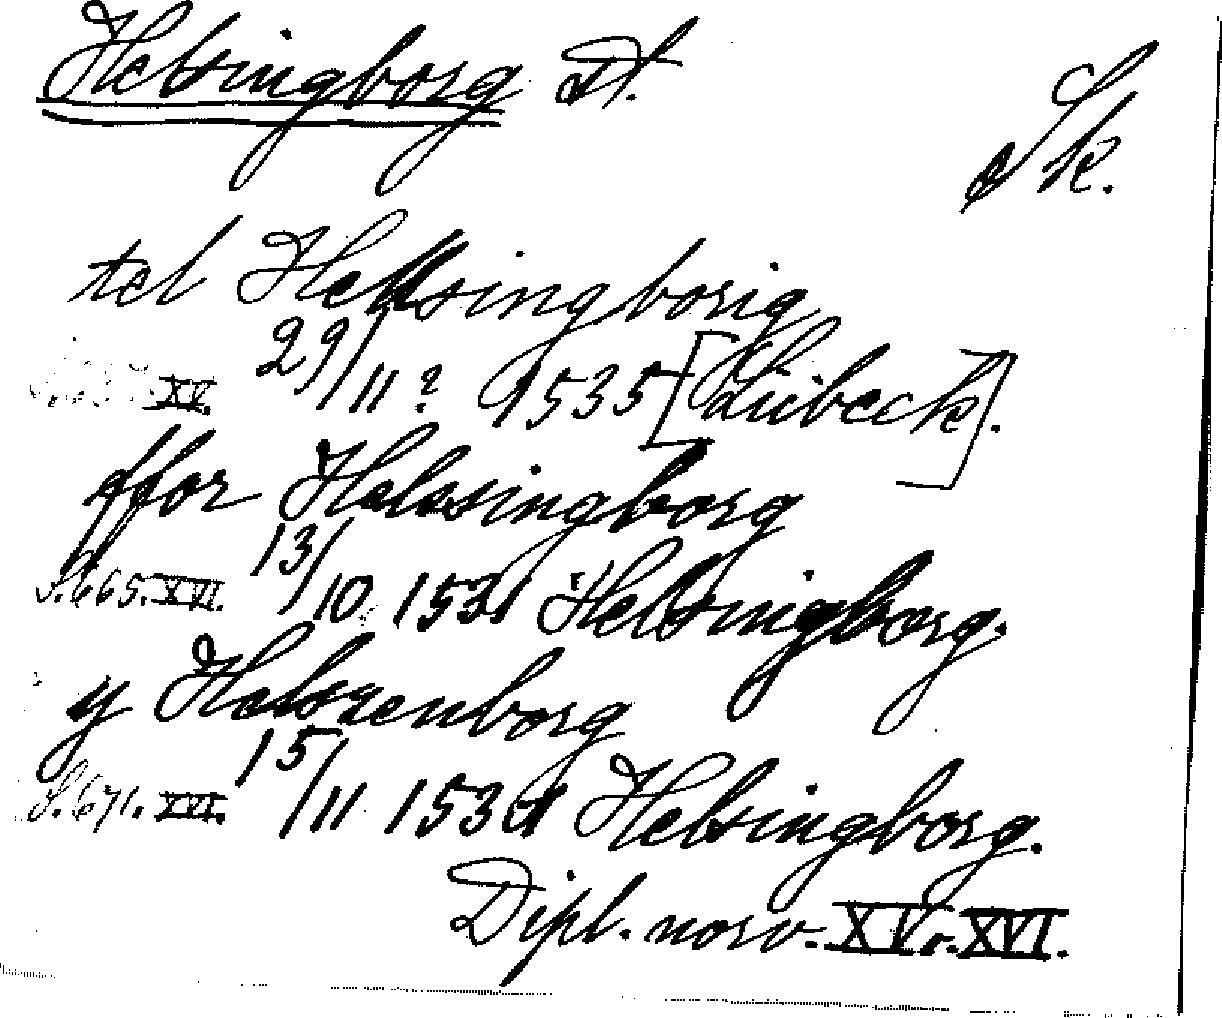 Helsingborg St.
Sk.
tel Hellsingborig
XV. 29/11? 1535 [Lübeck].
ffor Helssingborg
S. 665. XVI. 13/10 153 Helsingborg.
y Helszenborg
S. 671. XVI. 15/11 153 Helsingborg.
Dipl. norv. XV. XVI.